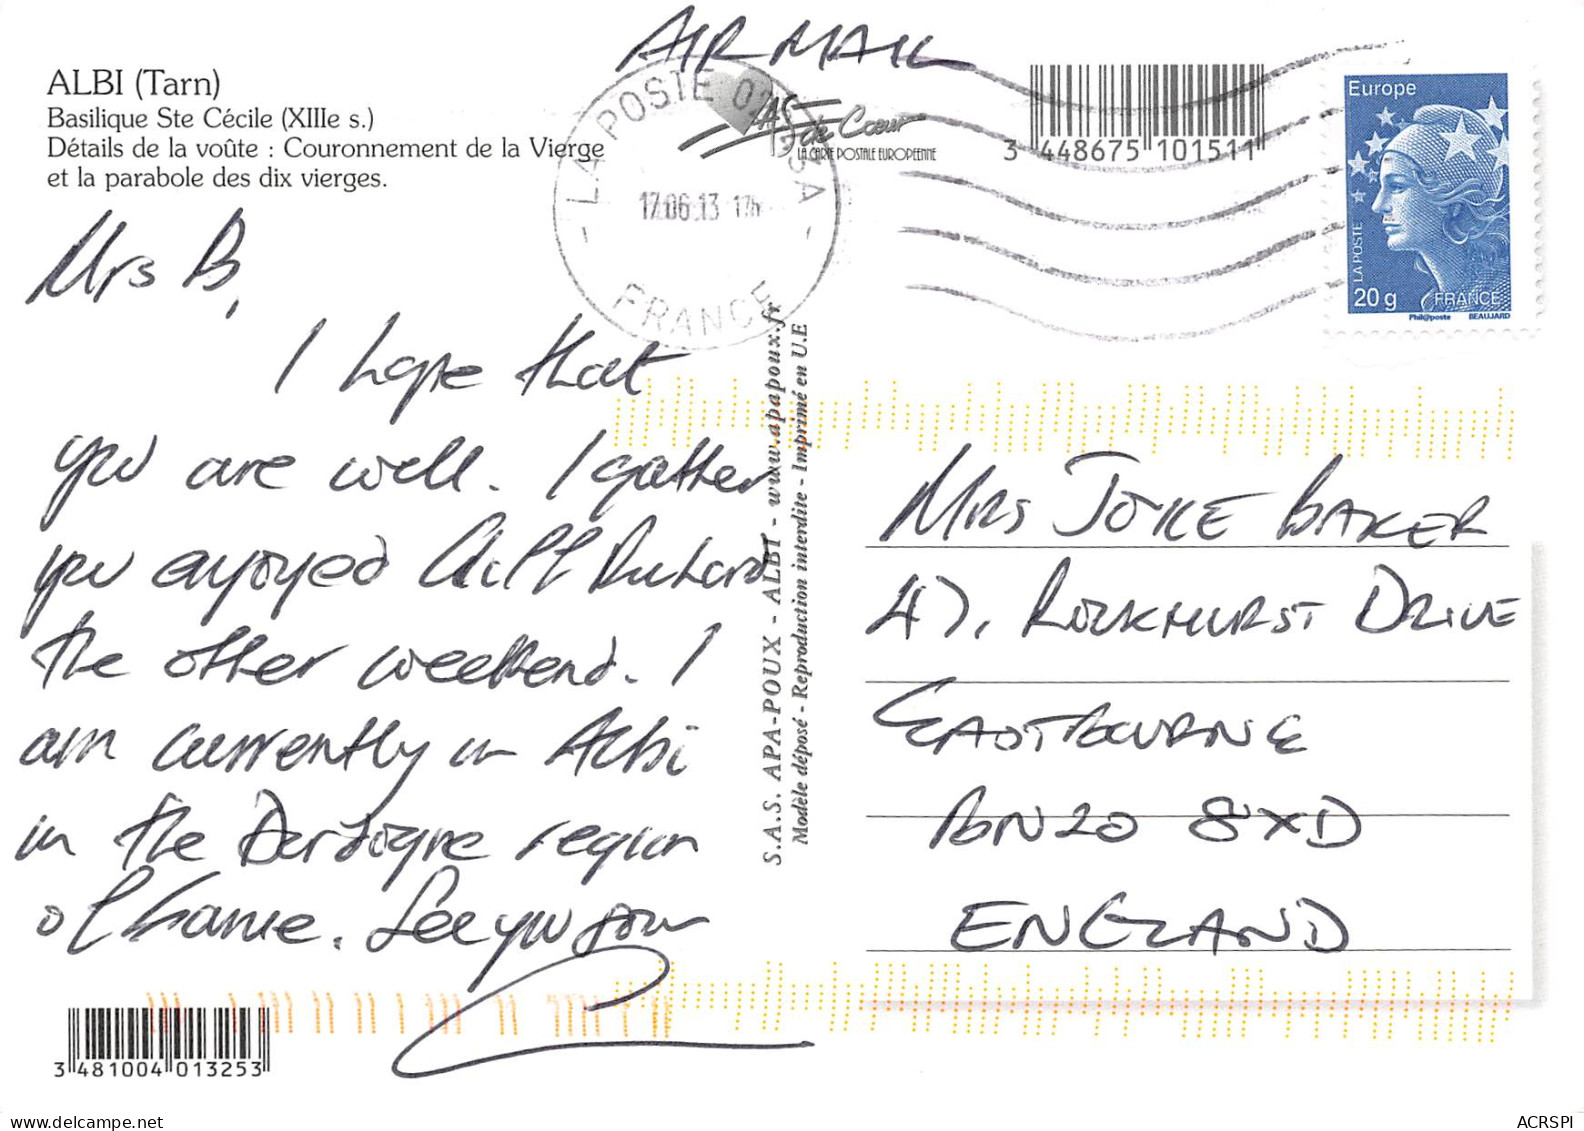 AIR MAIL
ALBI (Tarn)
Basilique Ste Cécile (XIIIe s.)
Détails de la voûte : Couronnement de la Vierge
et la parabole des dix vierges.
LA POSTE
17.06.13 17h
FRANCE
AS de Cœur
LA CARTE POSTALE EUROPEENNE
3 448675 101511
Europe
LA POSTE
20 g FRANCE
Phil@poste BEAUJARD
Mrs B,
I hope that
you are well. I gather
you enjoyed Cliff Richard
the other weekend. I
am currently in Albi
in the Dordogne region
of France. See you soon
S.A.S. APA-POUX - ALBI - www.apapoux.fr
Modèle déposé - Reproduction interdite - Imprimé en U.E
MRS JOYCE BAKER
47, ROCKHURST DRIVE
EASTBOURNE
BN20 8XD
ENGLAND
3 481004 013253
www.delcampe.net
ACRSPI